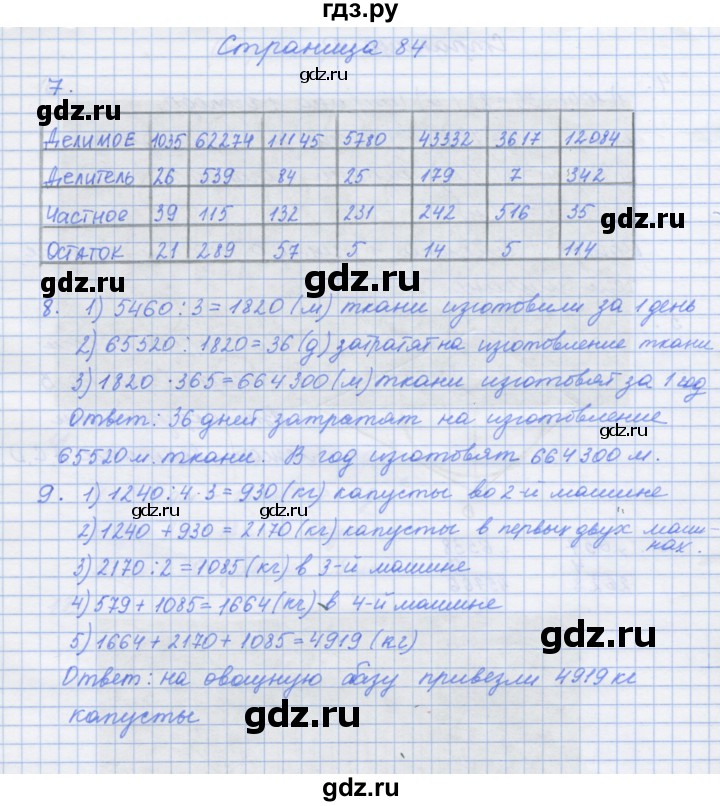 гдз.ру
Страница 84
gdz.ru
7.
gdz.ru
gdz.ru
Делимое 1035 62274 11145 5780 43332 3617 12084
Делитель 26 539 84 25 179 7 342
Частное 39 115 132 231 242 516 35
gdz.ru
Остаток 21 289 57 5 14 5 114
gdz.ru
gdz.ru
8. 1) 5460 : 3 = 1820 (м) ткани изготовили за 1 день
2) 65520 : 1820 = 36 (д) затратят на изготовление ткани
3) 1820 · 365 = 664300 (м) ткани изготовят за 1 год
Ответ: 36 дней затратят на изготовление
gdz.ru
65520 м. ткани. В год изготовят 664300 м.
gdz.ru
9. 1) 1240 : 4 · 3 = 930 (кг) капусты во 2-й машине
gdz.ru
2) 1240 + 930 = 2170 (кг) капусты в первых двух маши-
нах.
3) 2170 : 2 = 1085 (кг) в 3-й машине
4) 579 + 1085 = 1664 (кг) в 4-й машине
5) 1664 + 2170 + 1085 = 4919 (кг)
gdz.ru
Ответ: на овощную базу привезли 4919 кг
капусты
gdz.ru
gdz.ru